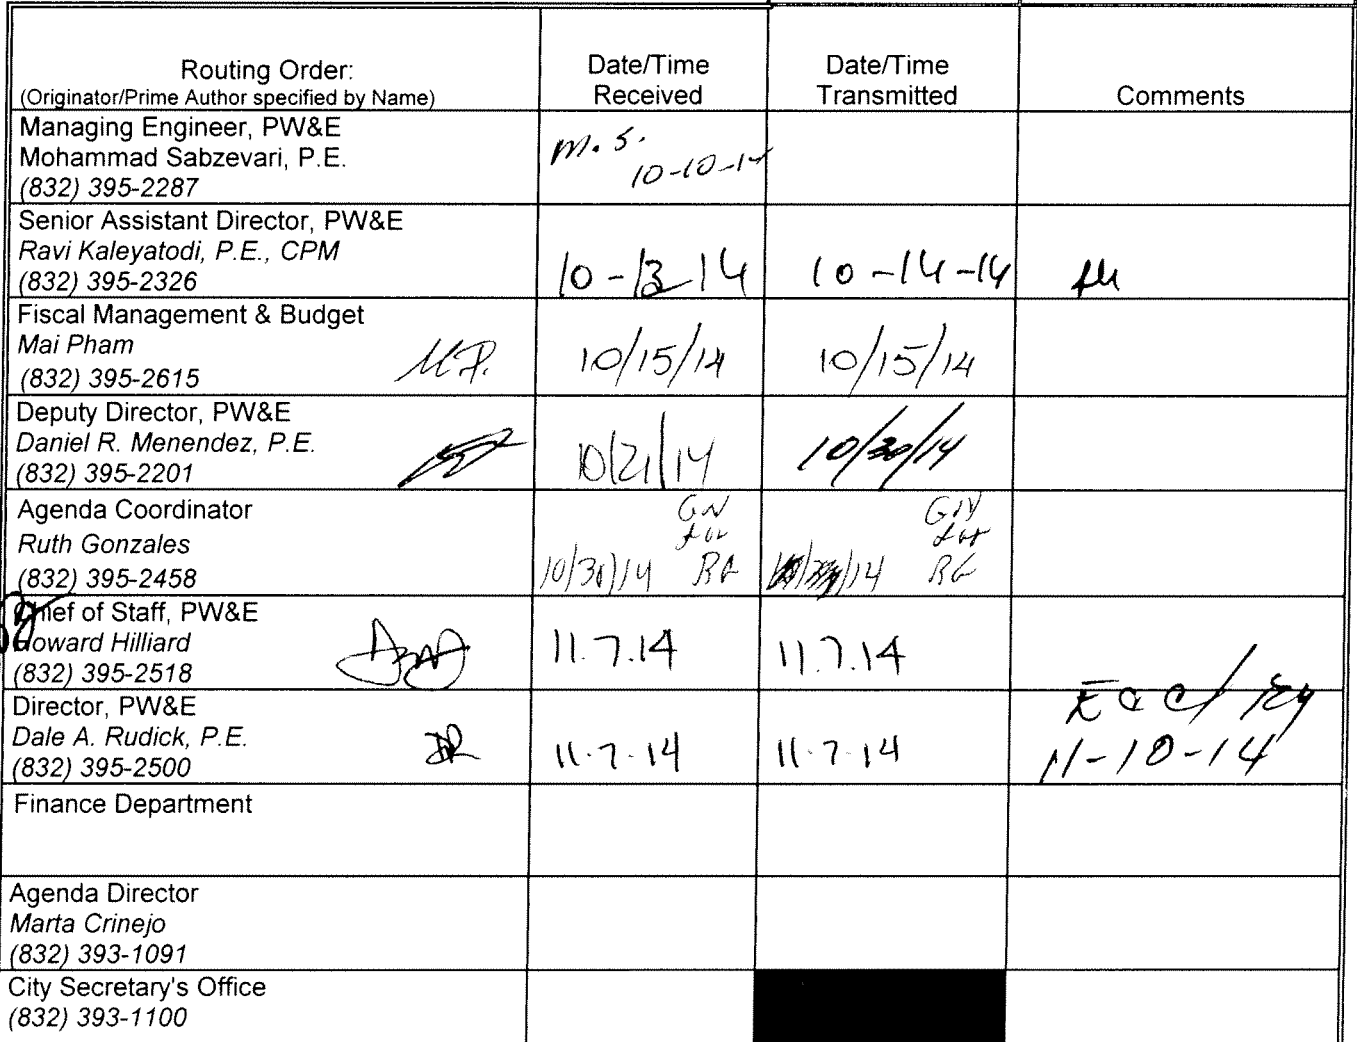 Routing Order:
(Originator/Prime Author specified by Name)
Date/Time
Received
Date/Time
Transmitted
Comments
Managing Engineer, PW&E
Mohammad Sabzevari, P.E.
(832) 395-2287
M.S.
10-10-14
Senior Assistant Director, PW&E
Ravi Kaleyatodi, P.E., CPM
(832) 395-2326
10-13-14
10-14-14
Fiscal Management & Budget
Mai Pham
(832) 395-2615
M.P.
10/15/14
10/15/14
Deputy Director, PW&E
Daniel R. Menendez, P.E.
(832) 395-2201
10/21/14
10/30/14
Agenda Coordinator
Ruth Gonzales
(832) 395-2458
GN
for
10/30/14 RG
GN
for
/14 RG
Chief of Staff, PW&E
Howard Hilliard
(832) 395-2518
11.7.14
11.7.14
Director, PW&E
Dale A. Rudick, P.E.
(832) 395-2500
DR
11-7-14
11-7-14
11-10-14
Finance Department
Agenda Director
Marta Crinejo
(832) 393-1091
City Secretary's Office
(832) 393-1100